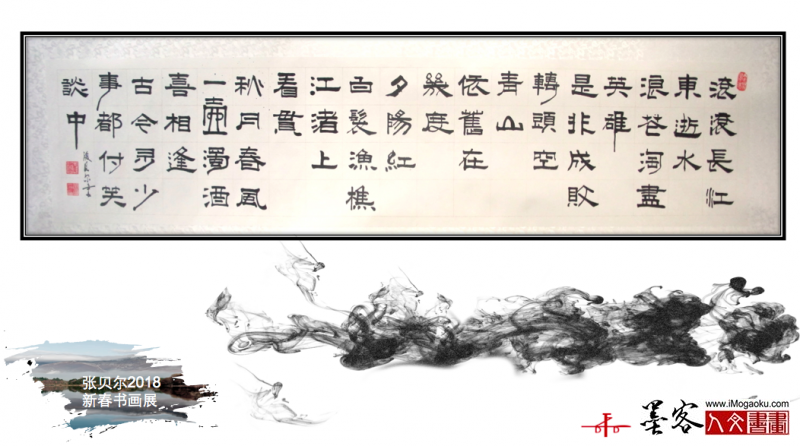 滾滾長江
東逝水
浪花淘盡
英雄
是非成敗
轉頭空
青山
依舊在
幾度
夕陽紅
白髮漁樵
江渚上
看貫
秋月春風
一壺濁酒
喜相逢
古今多少
事都付笑
談中
张贝尔2018
新春书画展
墨客
www.iMogaoku.com
人文書畫